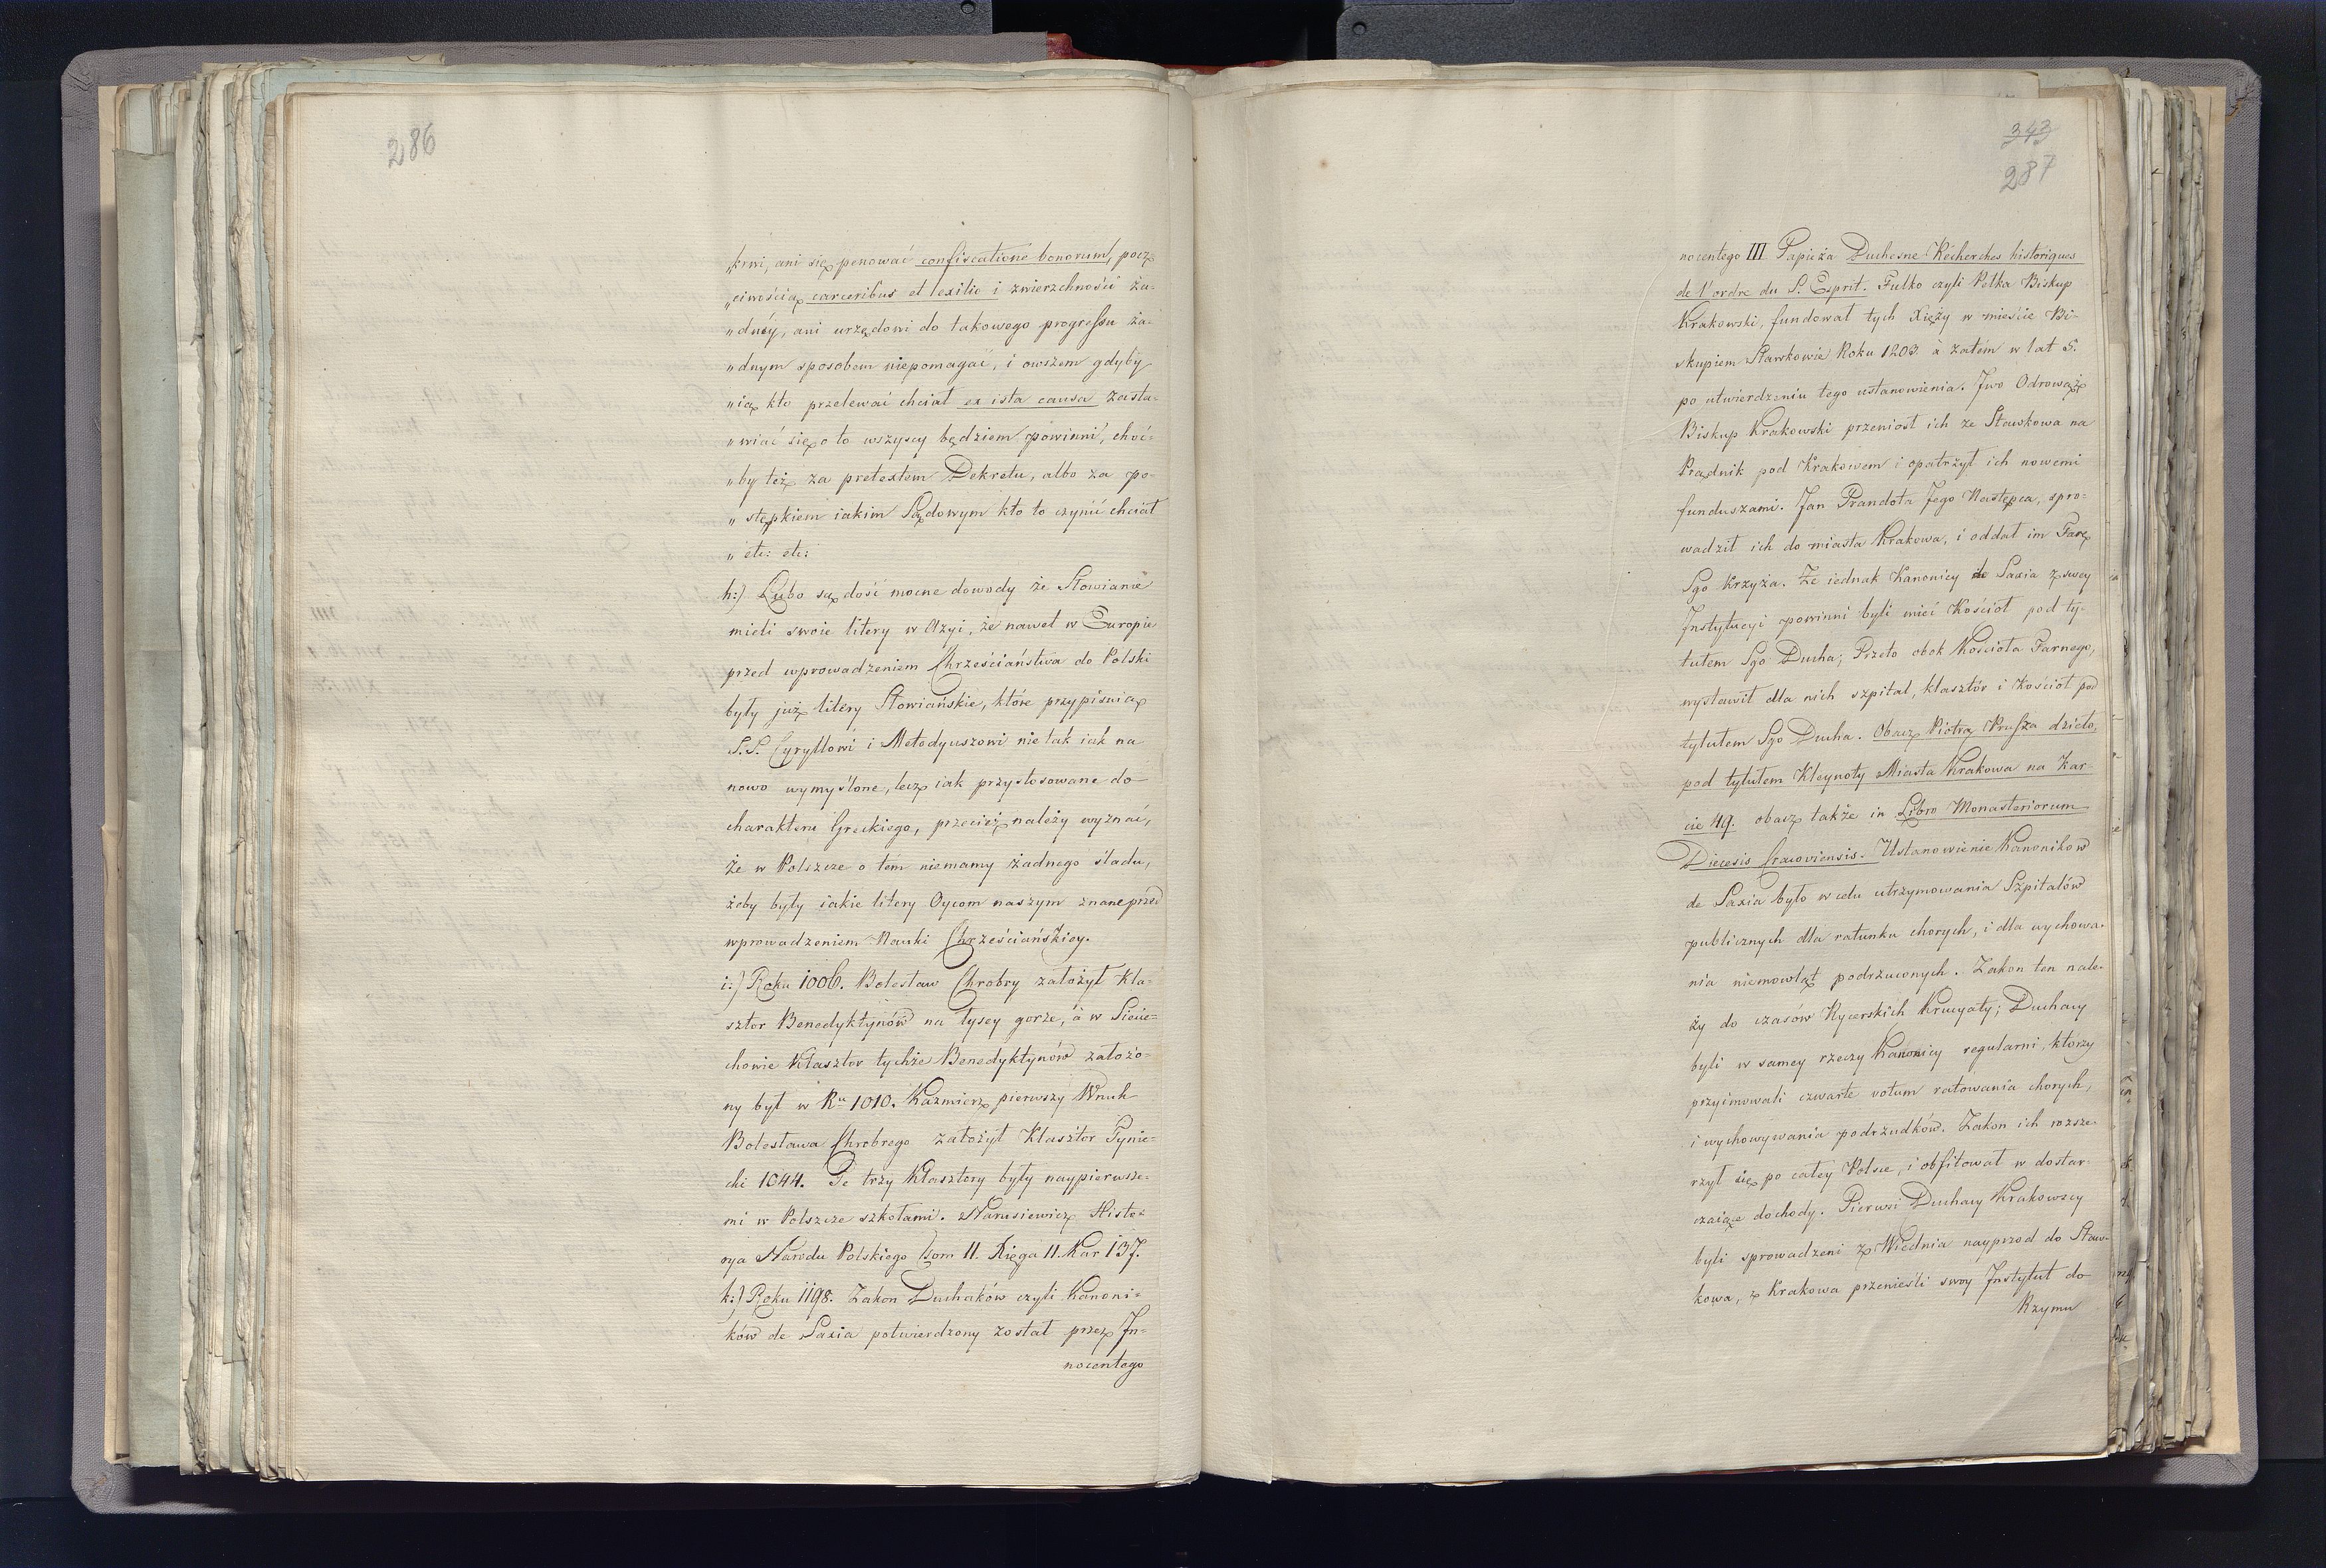 286
„krwi, ani się penować confiscatione bonorum, pocz
„ciwością carceribus et exilio i zwierzchności ża-
„dney, ani urzędowi do takowego progressu ża-
„dnym sposobem niepomagać, i owszem gdyby
„ią kto przelewać chciał ex ista causa zasta-
„wiać się o to wszyscy będziem powinni, choć-
„by też za pretextem Dekretu, albo za po-
„stępkiem iakim Sądowym kto to czynić chciał
„etc: etc:
h:) Lubo są dość mocne dowody że Słowianie
mieli swoie litery w Azyi, że nawet w Europie
przed wprowadzeniem Chrześciaństwa do Polski
były już litery Słowiańskie, które przypisuią
S.S. Cyryllowi i Metodyuszowi nie tak iak na
nowo wymyślone, lecz iak przystosowane do
charakteru Greckiego, przecież należy wyznać,
że w Polszcze o tém niemamy żadnego śladu,
żeby były iakie litery Oycom naszym znane przed
wprowadzeniem Nauki Chrześciańskiey.
i:) Roku 1006. Bolesław Chrobry założył Kla-
sztor Benedyktynów na łysey gorze, á w Siecie-
chowie Klasztor tychże Benedyktynów założo-
ny był w Ru 1010. Kazmierz pierwszy Wnuk
Bolesława Chrobrego założył Klasztor Tynie-
cki 1044. Te trzy Klasztory były naypierwsze-
mi w Polszcze szkołami. Naruszewicz Histo-
rya Narodu Polskiego Tom II. Xięga II. Kar 137.
k:) Roku 1198. Zakon Duchaków czyli Kanoni-
ków de Saxia potwierdzony został przez In-
nocentego
343
287
nocentego III Papieża Duchesne Recherches historiques
de l'ordre du S. Esprit. Fulko czyli Pełka Biskup
Krakowski, fundował tych Xięży w mieście Bi-
skupiem Sławkowie Roku 1203. á zatém w lat 5.
po utwierdzeniu tego ustanowienia. Iwo Odrowąż
Biskup Krakowski przeniosł ich ze Sławkowa na
Prądnik pod Krakowem i opatrżył ich nowemi
funduszami. Jan Prandota Jego Następca, spro-
wadził ich do miasta Krakowa, i oddał im Farę
Sgo Krzyża. Że iednak Kanonicy de Saxia z swey
Instytucyi powinni byli mieć Kościoł pod ty-
tułem Sgo Ducha; Przeto obok Kościoła Farnego,
wystawił dla nich szpital, klasztór i Kościoł pod
tytułem Sgo Ducha. Obacz Piotra Prusza dzieło,
pod tytułem Kleynoty Miasta Krakowa na Kar-
cie 49. obacz także in Libro Monasteriorum
Diecesis Cracoviensis. Ustanowienie Kanonikow
de Saxia było w celu utrzymowania Szpitalów
publicznych dla ratunku chorych, i dla wychowa-
nia niemowląt podrzuconych. Zakon ten nale-
ży do czasów Rycerskich Krucyaty; Duchacy
byli w samey rzeczy Kanonicy regularni, którzy
przyimowali czwarte votum ratowania chorych,
i wychowywania podrzudków. Zakon ich rozsze-
rzył się po całey Polsce, i obfitował w dostar-
czaiące dochody. Pierwsi Duchacy Krakowscy
byli sprowadzeni z Wiednia nayprzod do Sław-
kowa, z Krakowa przenieśli swoy Instytut do
Rzymu